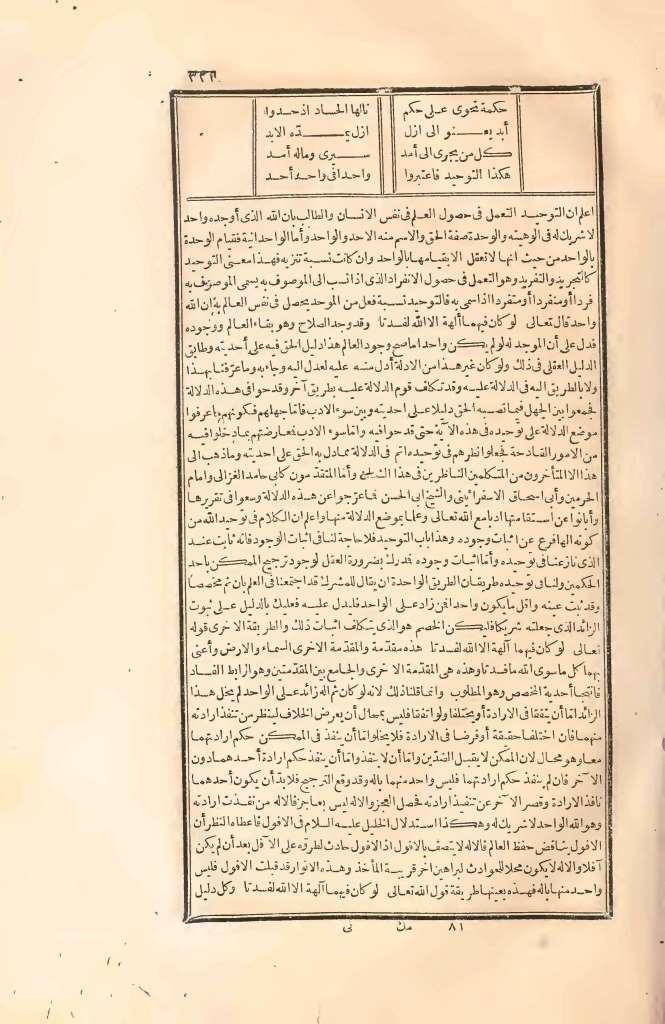 ٣٣٣
حكمة تحوى على حكم نالها الحساد اذ حسدوا
أبد يعنو الى ازل ازل يمده الابد
كل من يجرى الى أمد سيرى وماله أمد
هكذا التوحيد فاعتبروا واحد فى واحد أحد
اعلم ان التوحيد التعمل فى حصول العلم فى نفس الانسان والطالب بان الله الذى أوجده واحد
لا شريك له فى الوهيته والوحدة صفة الحق والاسم منه الاحد والواحد وأما الوحدانية فقيام الوحدة
بالواحد من حيث انها لا تعقل الا بقيامها بالواحد وان كانت نسبة تنزيه فهذا معنى التوحيد
كالتجريد والتفريد وهو التعمل فى حصول الانفراد الذى اذا نسب الى الموصوف به يسمى الموصوف به
فردا أو منفردا أو متفردا اذا سمى به فالتوحيد نسبة فعل من الموحد يحصل فى نفس العالم به ان الله
واحد قال تعالى لو كان فيهما آلهة الا الله لفسدتا وقد وجد الصلاح وهو بقاء العالم ووجوده
فدل على أن الموجد له لو لم يكن واحدا ما صح وجود العالم هذا دليل الحق فيه على أحديته وطابق
الدليل العقلى فى ذلك ولو كان غير هذا من الادلة أدل منه عليه لعدل اليه وجاء به وما عرّفنا بهذا
ولا بالطريق اليه فى الدلالة عليه وقد تكلف قوم الدلالة عليه بطريق آخر وقدحوا فى هذه الدلالة
فجمعوا بين الجهل فيما نصبه الحق دليلا على احديته وبين سوء الادب فاما جهلهم فكونهم ما عرفوا
موضع الدلالة على توحيده فى هذه الآية حتى قدحوا فيه وامّا سوء الادب فمعارضتهم بما دخلوا فيه
من الامور القادحة فجعلوا نظرهم فى توحيده اتم فى الدلالة مما دل به الحق على احديته وما ذهب الى
هذا الا المتأخرون من المتكلمين الناظرين فى هذا الشان وأما المتقدّمون كابى حامد الغزالى وامام
الحرمين وأبى اسحاق الاسفراينى والشيخ ابى الحسن فما عرّجوا عن هذه الدلالة وسعوا فى تقريرها
وأبانوا عن استقامتها ادبا مع الله تعالى وعلما بموضع الدلالة منها واعلم ان الكلام فى توحيد الله من
كونه الها فرع عن اثبات وجوده وهذا باب التوحيد فلا حاجة لنا فى اثبات الوجود فانه ثابت عند
الذى نازعنا فى توحيده وأما اثبات وجوده فمدرك بضرورة العقل لوجود ترجيح الممكن باحد
الحكمين ولنا فى توحيده طريقان الطريق الواحدة ان يقال للمشرك قد اجتمعنا فى العلم بان ثم مخصصا
وقد ثبت عينه واقل ما يكون واحدا فمن زاد على الواحد فليدل عليه فعليك بالدليل على ثبوت
الزائد الذى جعلته شريكا فليكن الخصم هو الذى يتكلف اثبات ذلك والطريقة الاخرى قوله
تعالى لو كان فيهما آلهة الا الله لفسدتا هذه مقدّمة والمقدّمة الاخرى السماء والارض وأعنى
بهما كل ما سوى الله ما فسدتا وهذه هى المقدّمة الاخرى والجامع بين المقدّمتين وهو الرابط الفساد
فانتجا أحدية المخصص وهو المطلوب وانما قلنا ذلك لانه لو كان ثم اله زائد على الواحد لم يخل هذا
الزائد امّا أن يتفقا فى الارادة أو يختلفا ولو اتفقا فليس بمحال أن يفرض الخلاف لينظر من تنفذ ارادته
منهما فان اختلفا حقيقة أو فرضا فى الارادة فلا يخلو امّا أن ينفذ فى الممكن حكم ارادتهما
معا وهو محال لان الممكن لا يقبل الضدّين وامّا أن لا ينفذ وامّا أن ينفذ حكم ارادة أحدهما دون
الآخر فان لم ينفذ حكم ارادتهما فليس واحد منهما باله وقد وقع الترجيح فلا بدّ أن يكون أحدهما
نافذ الارادة وقصر الآخر عن تنفيذ ارادته فحصل العجز والاله ليس بعاجز فالاله من نفذت ارادته
وهو الله الواحد لا شريك له وهكذا استدلال الخليل عليه السلام فى الافول فاعطاه النظر أن
الافول يناقض حفظ العالم فالاله لا يتصف بالافول اذ الافول حادث لطروّه على الآفل بعد أن لم يكن
آفلا والاله لا يكون محلا للحوادث لبراهين أخر قريبة المأخذ وهذه الانوار قد قبلت الافول فليس
واحد منها باله فهذه بعينها طريقة قول الله تعالى لو كان فيهما آلهة الا الله لفسدتا وكل دليل
٨١ مك نى